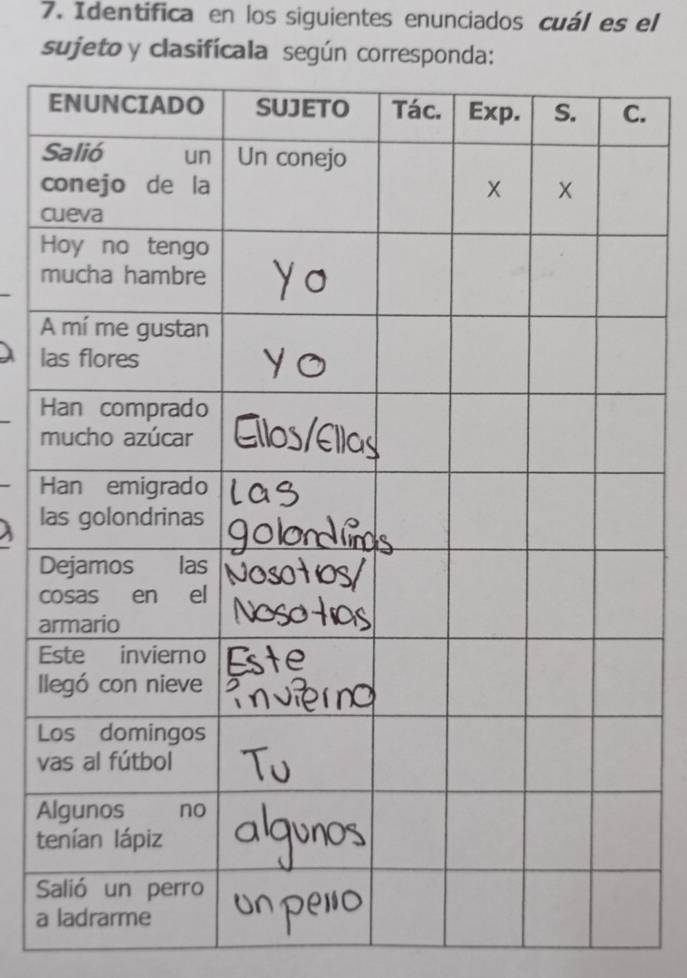 7. Identifica en los siguientes enunciados cuál es el
sujeto y clasifícala según corresponda:
ENUNCIADO SUJETO Tác. Exp. S. C.
Salió un Un conejo
conejo de la X X
cueva
Hoy no tengo
mucha hambre Yo
A mí me gustan
las flores Yo
Han comprado
mucho azúcar Ellos/Ellas
Han emigrado Las
las golondrinas golondrinas
Dejamos las Nosotros/
cosas en el Nosotras
armario
Este invierno Este
llegó con nieve invierno
Los domingos
vas al fútbol Tu
Algunos no
tenían lápiz algunos
Salió un perro
a ladrarme un perro